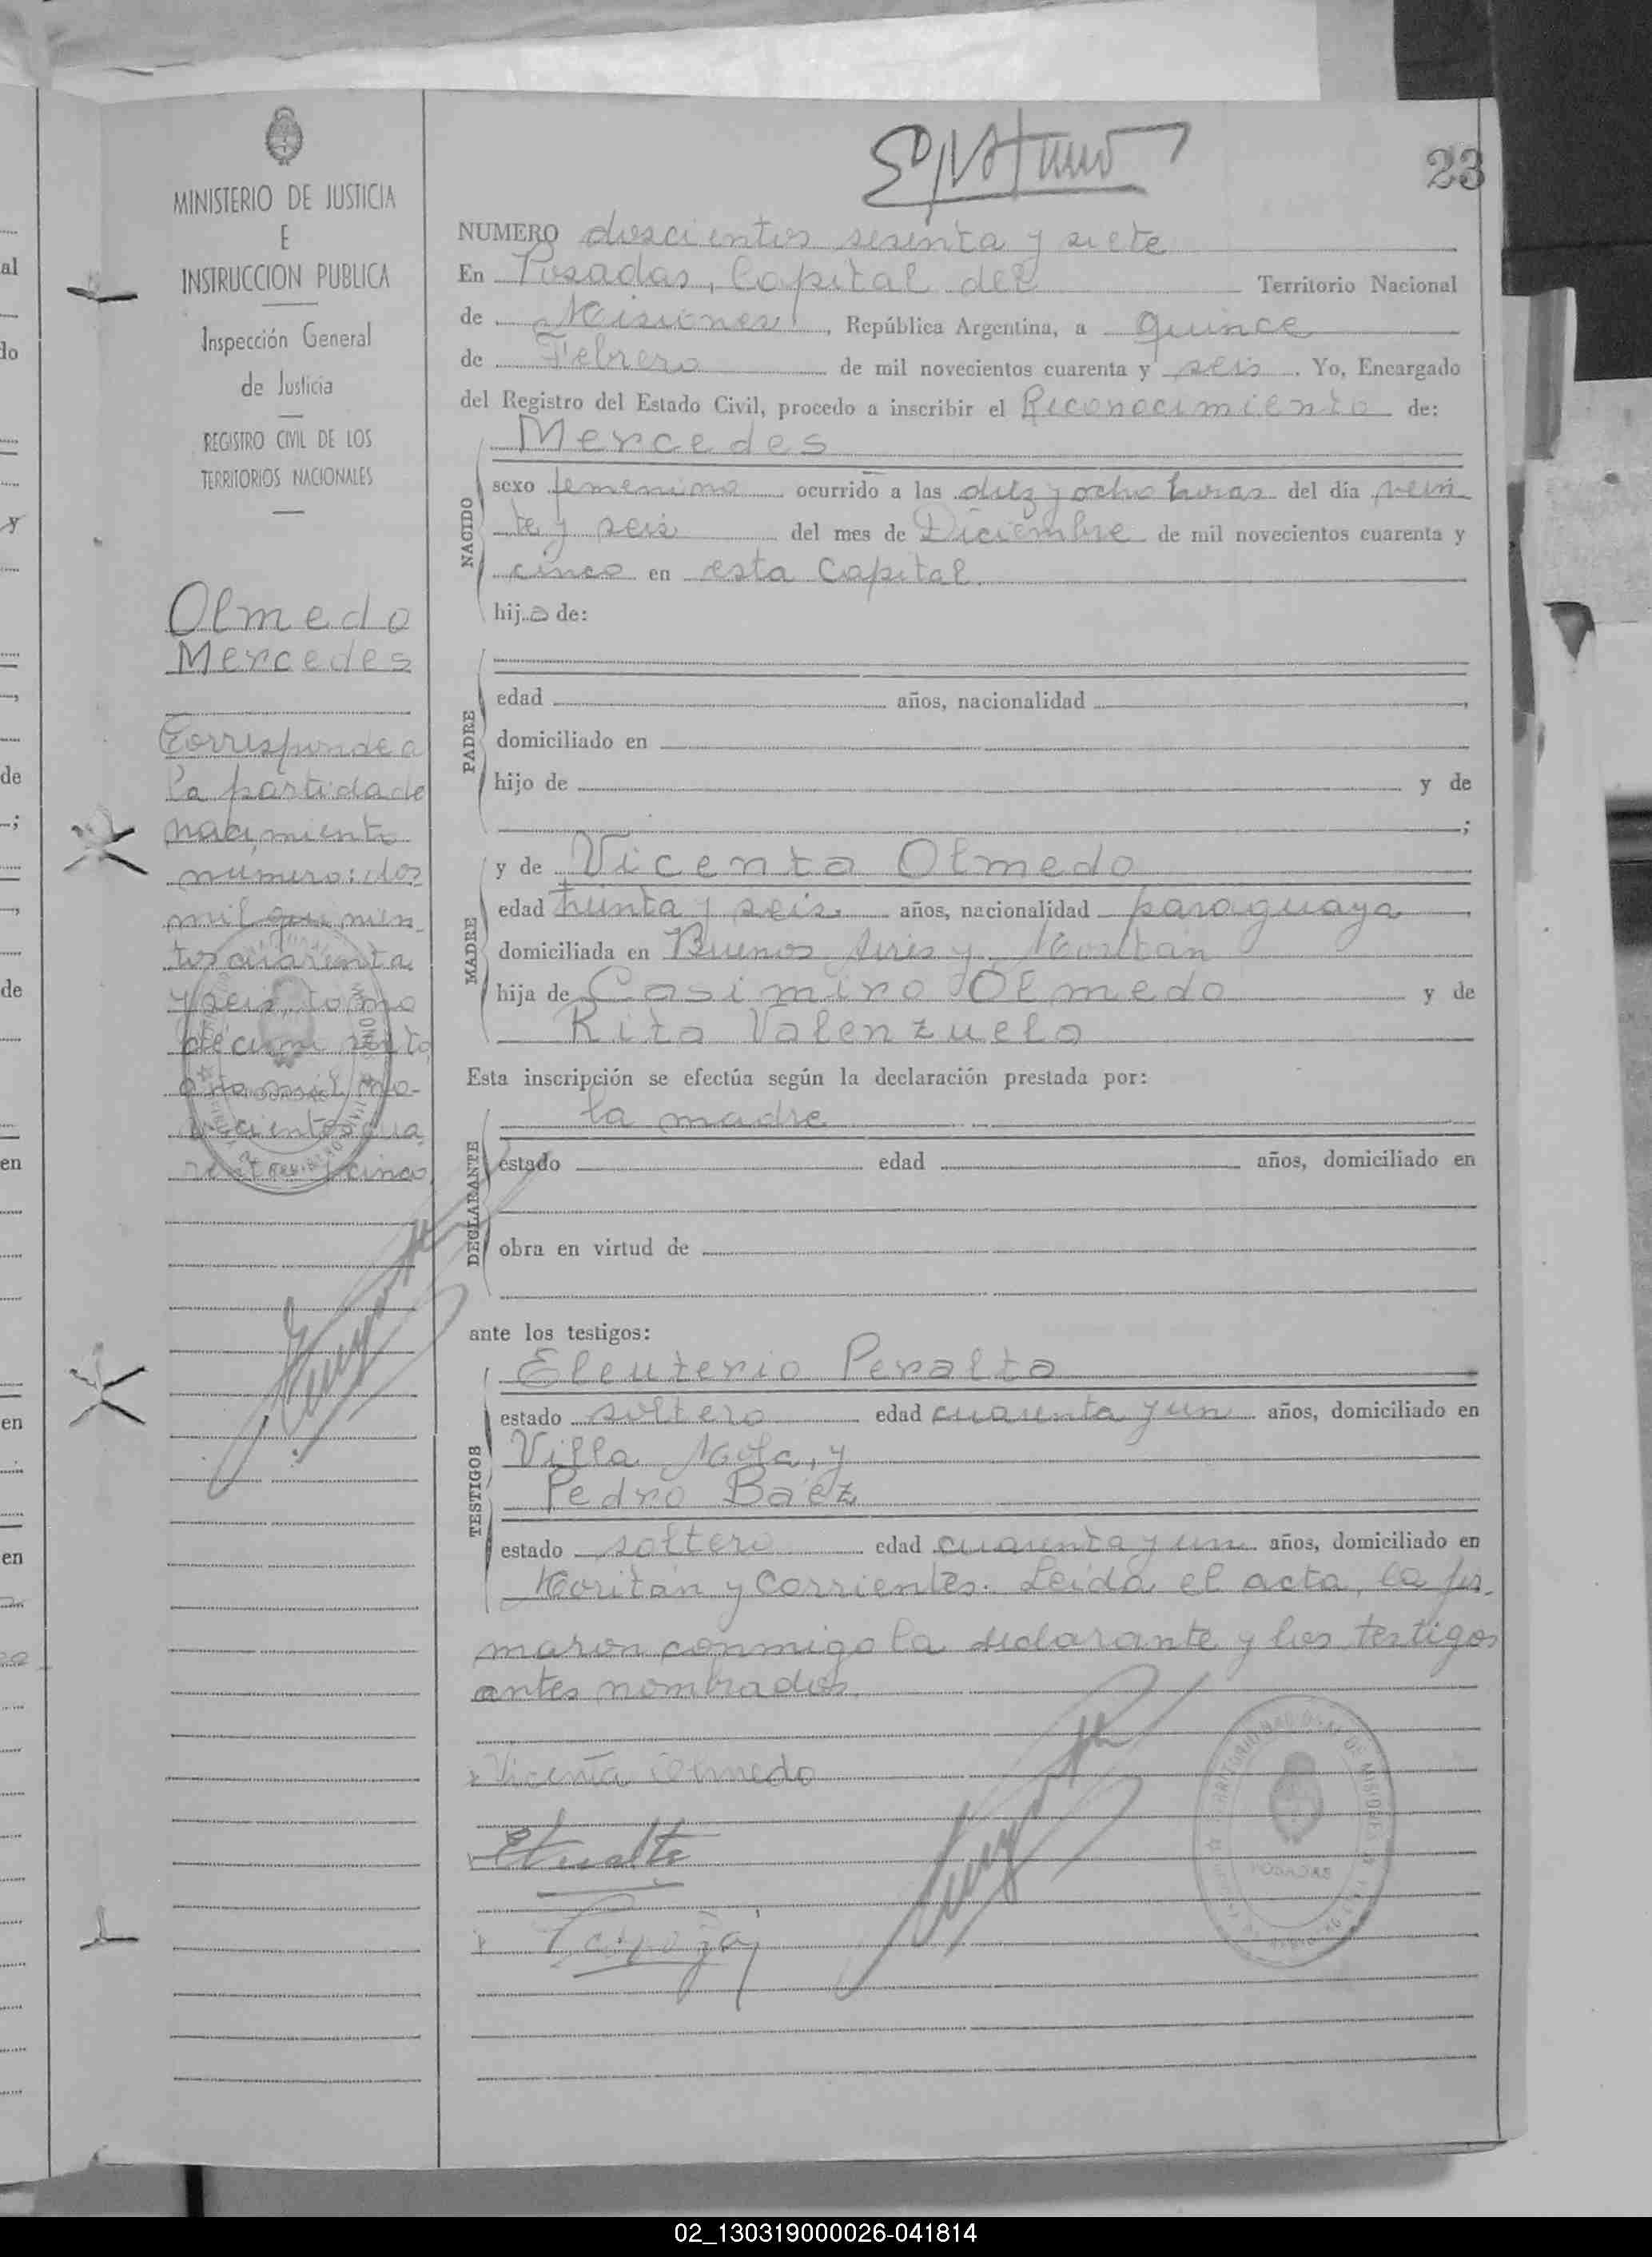 23
MINISTERIO DE JUSTICIA
E
INSTRUCCION PUBLICA
Inspección General
de Justicia
REGISTRO CIVIL DE LOS
TERRITORIOS NACIONALES
Olmedo
Mercedes
Corresponde a
la partida de
nacimiento
número: dos
mil quinien-
tos cuarenta
y seis, tomo
décimo sexto
año mil no-
vecientos cua
renta y cinco
NUMERO doscientos sesenta y siete
En Posadas, Capital del Territorio Nacional
de Misiones, República Argentina, a quince
de Febrero de mil novecientos cuarenta y seis. Yo, Encargado
del Registro del Estado Civil, procedo a inscribir el Reconocimiento de:
NACIDO
Mercedes
sexo femenino ocurrido a las diez y ocho horas del día vein
te y seis del mes de Diciembre de mil novecientos cuarenta y
cinco en esta Capital.
hija de:
PADRE
edad años, nacionalidad ,
domiciliado en
hijo de y de
;
MADRE
y de Vicenta Olmedo
edad treinta y seis años, nacionalidad paraguaya,
domiciliada en Buenos Aires y
hija de Casimiro Olmedo y de
Rita Valenzuela
Esta inscripción se efectúa según la declaración prestada por:
DECLARANTE
la madre
estado edad años, domiciliado en
obra en virtud de
ante los testigos:
TESTIGOS
Eleuterio Peralta
estado soltero edad cuarenta y un años, domiciliado en
Villa Mola, y
Pedro Baéz
estado soltero edad cuarenta y un años, domiciliado en
y Corrientes. Leida el acta, la fir-
maron conmigo la declarante y los testigos
antes nombrados.
Vicenta Olmedo
EPeralta
POSADAS
02_130319000026-041814